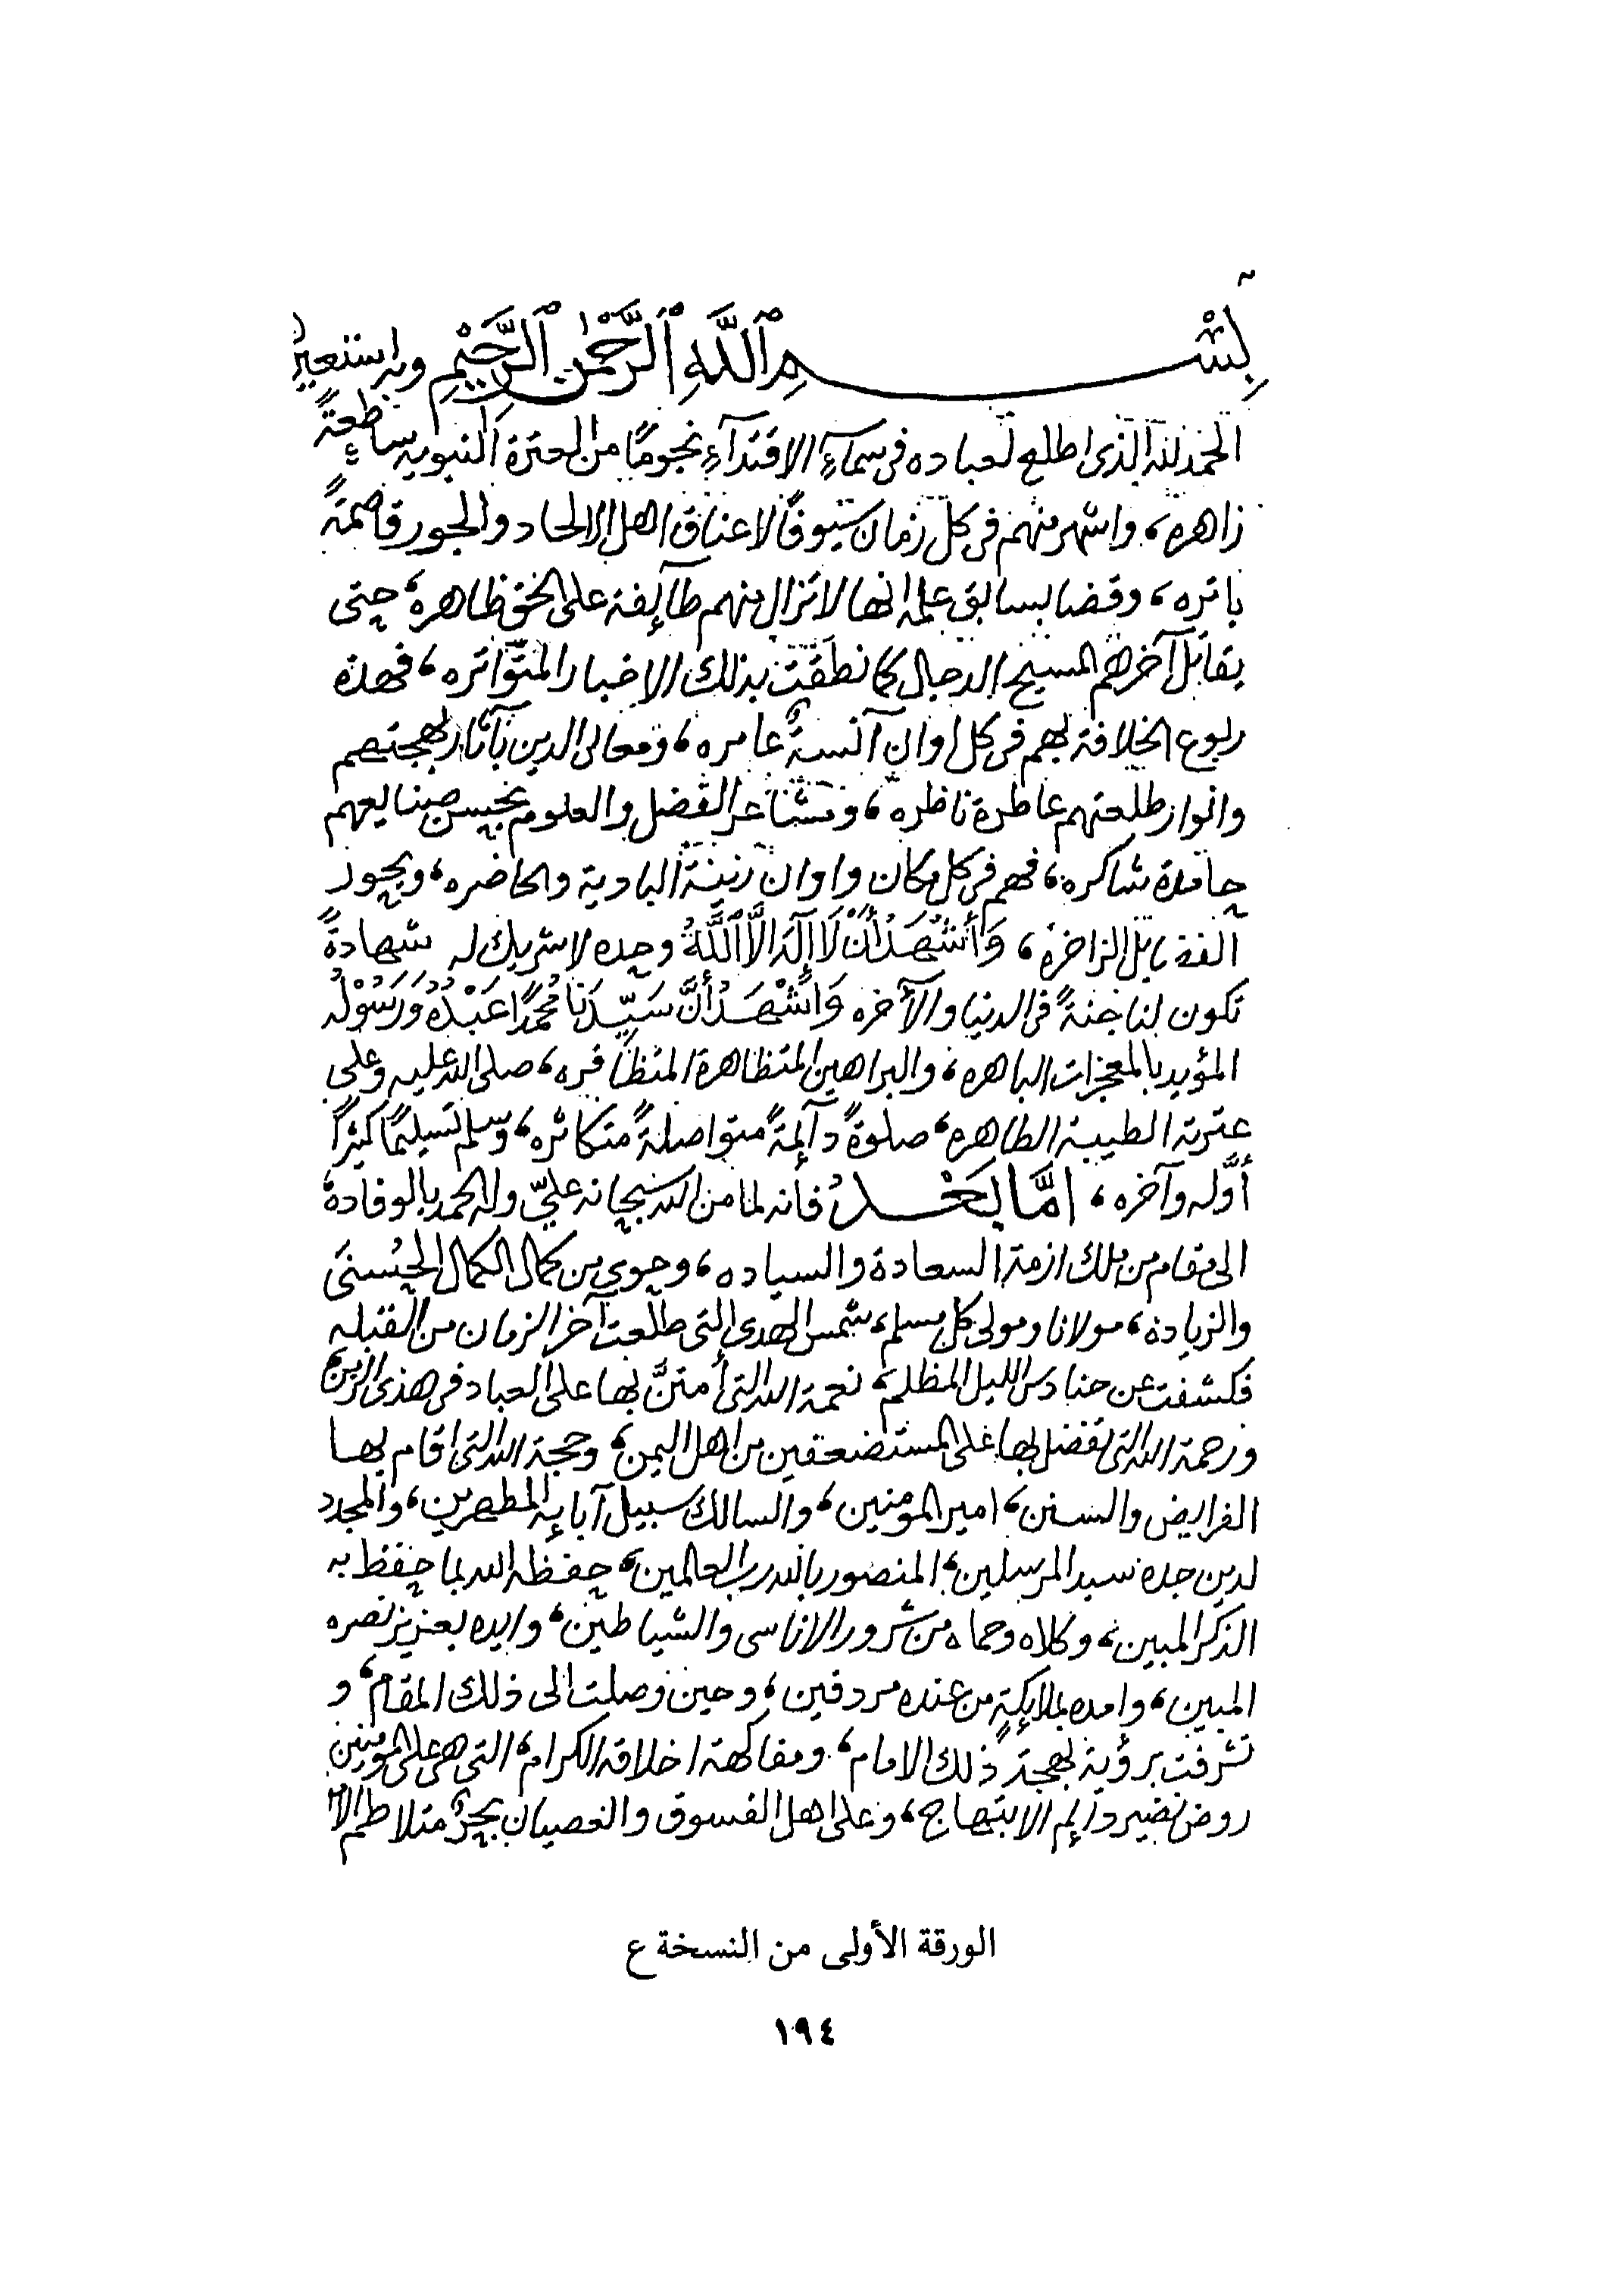 بِسْمِ ٱللَّهِ ٱلرَّحْمٰنِ ٱلرَّحِيْمِ وبه استعين
الحمد لله الذى اطلع لعباده فى سمآءِ الاقتدآءِ نجومًا من العترة النبويه ساطعةً
زاهره، واشهر منهم فى كل زمان سيوفًا لاعناق اهل الالحاد والجور قاصمةً
باتره، وقضا بسابق علمه انها لا تزال منهم طآيفة على الحق ظاهره، حتى
يقاتل آخرهم المسيح الدجال كما نطقت بذلك الاخبار المتواتره، فهذه
ربوع الخلافة بهم فى كل اوان آنسةٌ عامره، ومعالى الدين بآثار بهجتهم
وانوار طلعتهم عاطرة ناظره، ومشاعر الفضل والعلوم بحسن صنايعهم
حامدة شاكره، فهم فى كل مكان واوان زينة البادية والحاضره، وبحور
الفضايل الزاخره، وَأَشْهَدُ أَنْ لَا إِلَهَ إِلَّا ٱللَّهُ وحده لا شريك له شهادةً
تكون لنا جنةً فى الدنيا والآخره وَاَشْهَدُ أَنَّ سَيِّدَنَا مُحَمَّدًا عَبْدُهُ وَرَسُوْلُه
المؤيد بالمعجزات الباهره، والبراهين المتظاهرة المتظافره، صلى الله عليه وعلى
عترته الطيبة الطاهره، صلوةً دآئمةً متواصلةً متكاثره، وسلم تسليمًا كثيرًا
أوَّله وآخره، امَّا بَعْدُ فانه لما من الله سبحانه عليّ وله الحمد بالوفادة
الى مقام من ملك ازمة السعادة والسياده، وحوى من كمال الكمال الحُسنىَ
والزياده، مولانا ومولى كل مسلم، شمس الهدى التى طلعت آخر الزمان من القبله
فكشفت عن حنادس الليل المظلم، نعمة الله التى أمتنَّ بها على العباد فى هذى الزمن
ورحمة الله التى تفضل بها على المستضعفين من اهل اليمن، وحجة الله التى اقام بها
الفرايض والسنن، امير المومنين، والسالك سبيل آبايه المطهرين، والمجدد
لدين جده سيد المرسلين، المنصور بالله رب العالمين، حفظه الله بما حفظ به
الذكر المبين، وكلاه وحماه من شرور الاناسى والشياطين، وايده بعزيز نصره
المبين، وامده بملايكةٍ من عنده مردفين، وحين وصلت الى ذلك المقام، و
تشرفت برؤية بهجة ذلك الامام، ومفاكهة اخلاقه الكرام، التى هى على المومنين
روض نضير دايم الابتهاج، وعلى اهل الفسوق والعصيان بحرٌ متلاطم الا
الورقة الأولى من النسخة ع
١٩٤